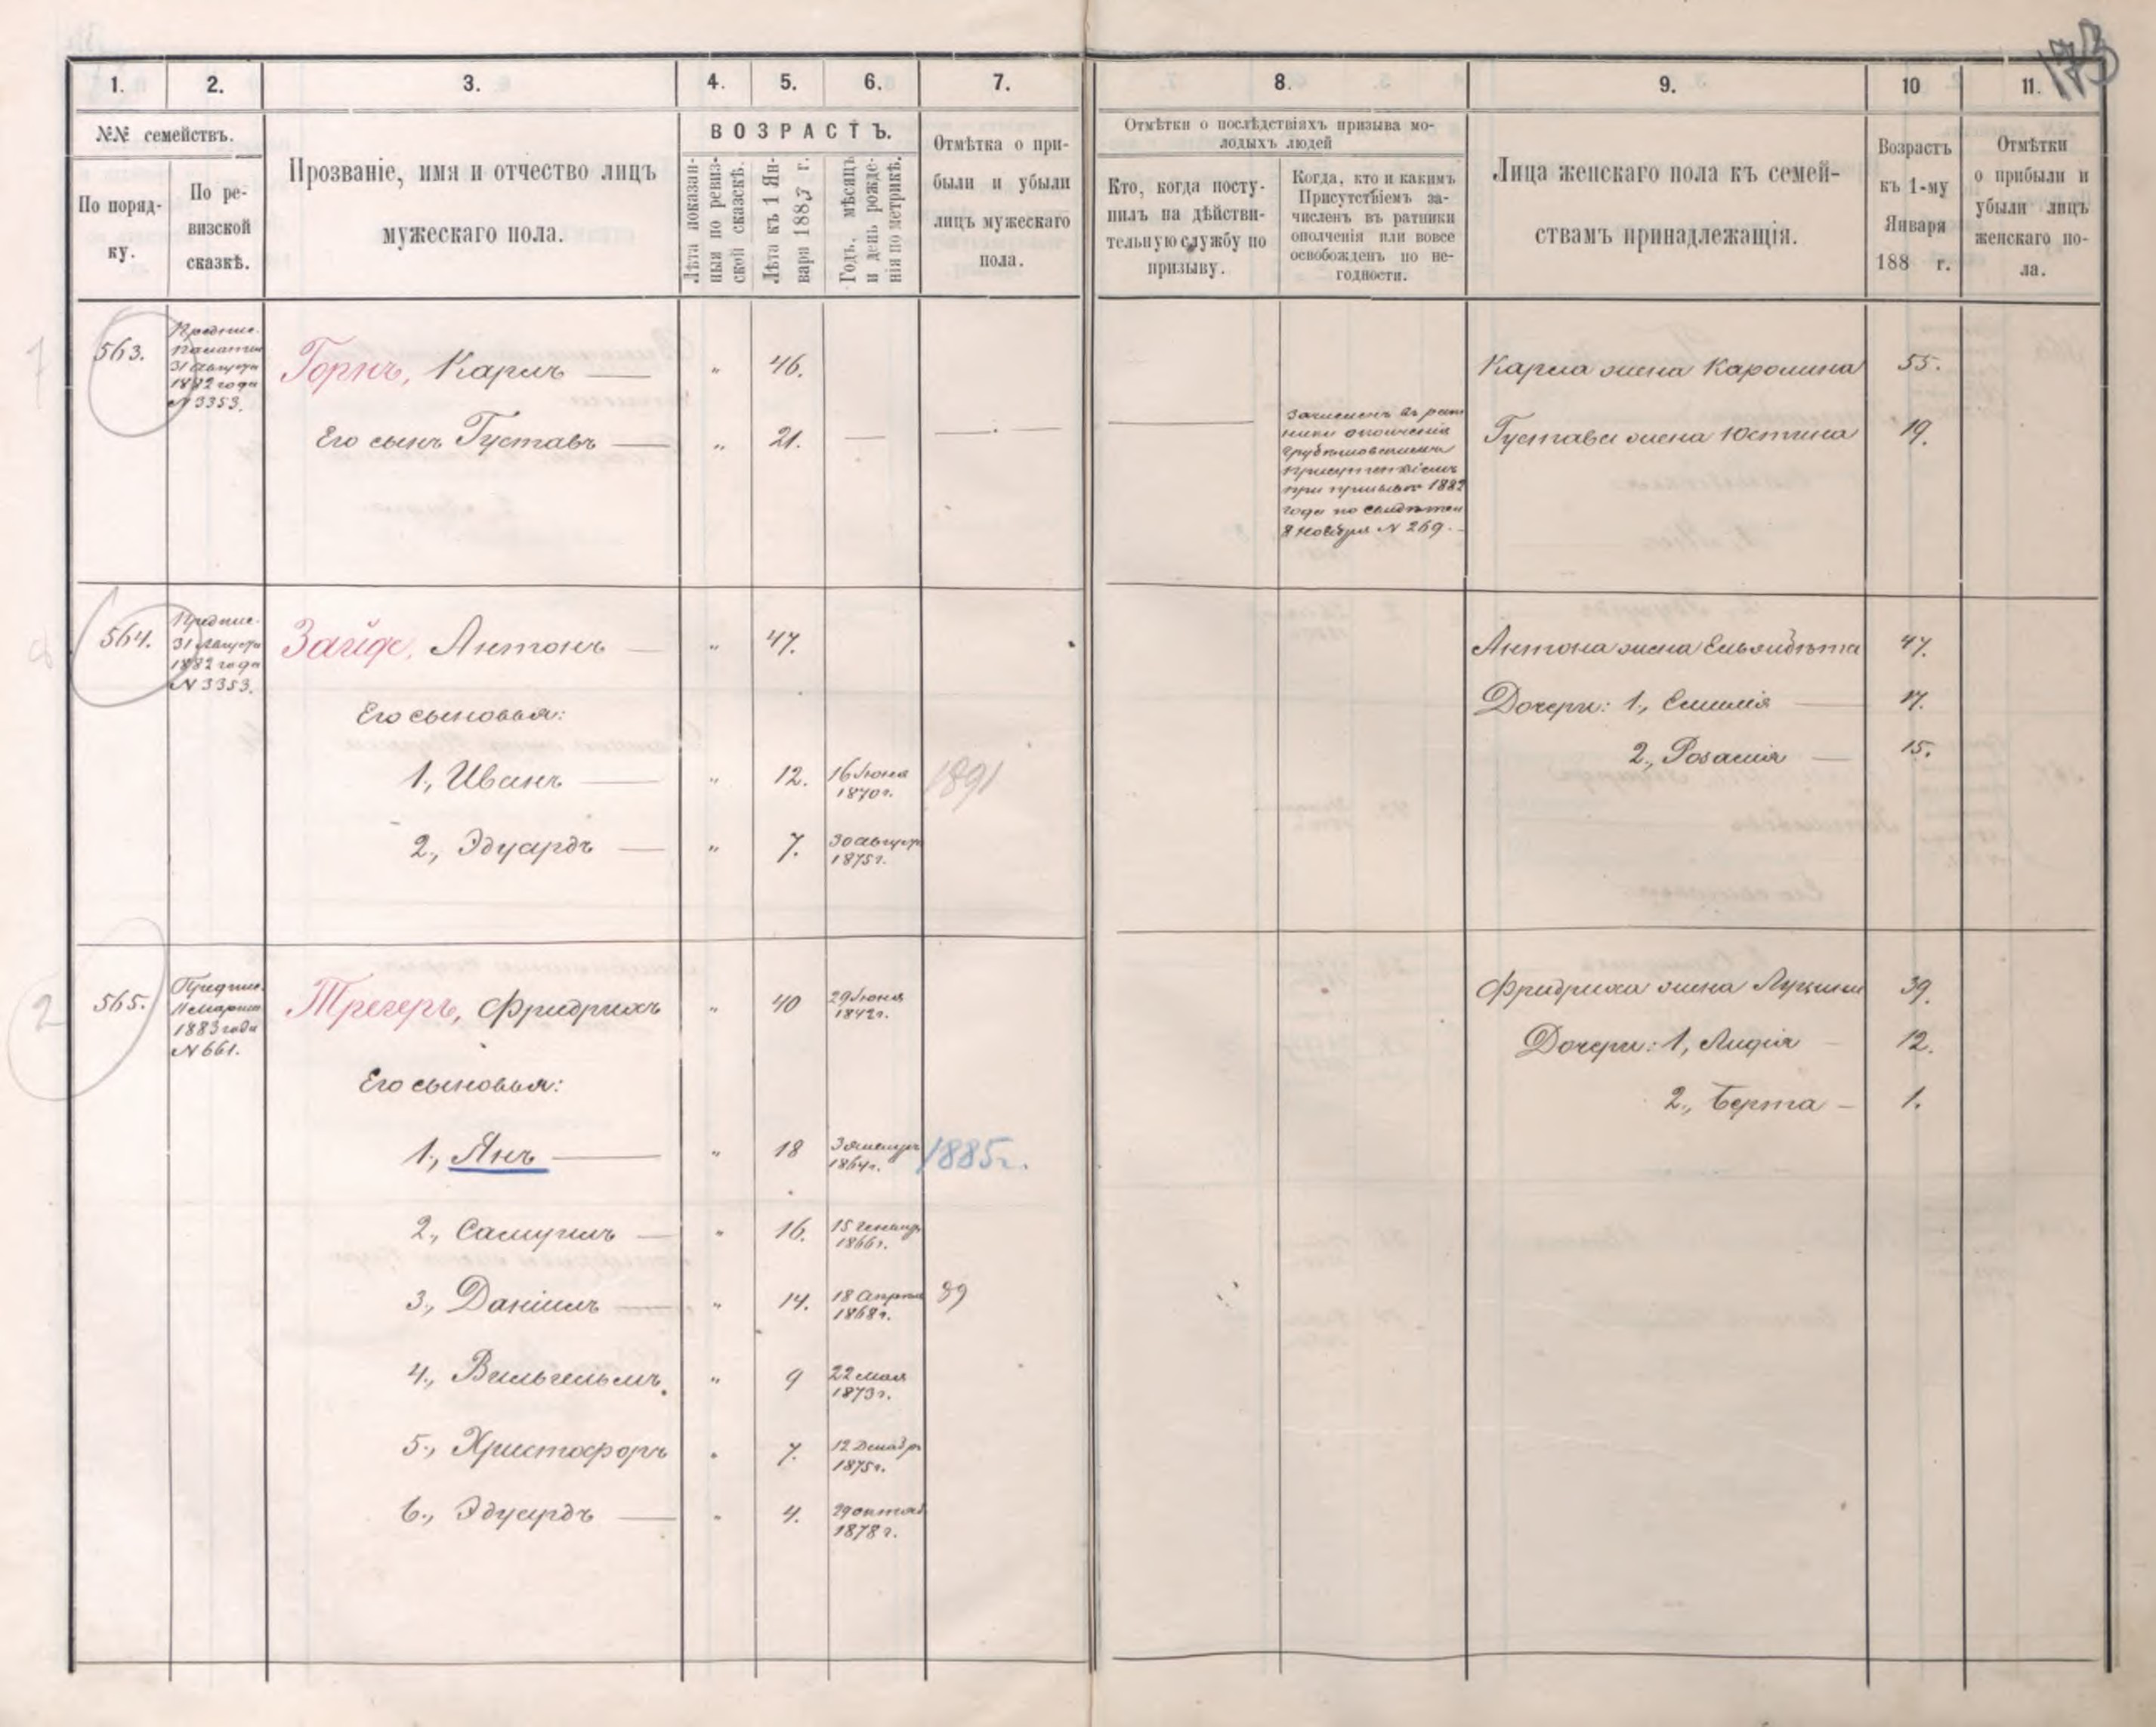 173
1. 2. 3. 4. 5. 6. 7. 8. 9. 10 11.
№№ семействъ.
По порядку.
По ревизской сказкѣ.
Прозваніе, имя и отчество лицъ
мужескаго пола.
ВОЗРАСТЪ.
Лѣта показанныя по ревизской сказскѣ.
Лѣта къ 1 Января 1883 г.
Годъ, мѣсяцъ и день рожденія по метрикѣ.
Отмѣтка о прибыли и убыли лицъ мужескаго пола.
Отмѣтки о послѣдствіяхъ призыва молодыхъ людей
Кто, когда поступилъ на дѣйствительную службу по призыву.
Когда, кто и какимъ Присутствіемъ зачисленъ въ ратники ополченія или вовсе освобожденъ по негодности.
Лица женскаго пола къ семействамъ принадлежащія.
Возрастъ къ 1-му Января 188 г.
Отмѣтки о прибыли и убыли лицъ женскаго пола.
563. Предпис. Палаты 31 Августа 1882 года N 3353.
Горнъ, Карлъ — „ 46.
Карла жена Каролина 55.
Его сынъ Густавъ — „ 21. — —
Зачисленъ въ ратники ополченія Грубешовскимъ присутствіемъ при призывѣ 1882 года по свидѣтел 8 Ноября N 269.
Густава жена Юстина 19.
564. Предпис. 31 Августа 1882 года N 3353.
Зайде, Антонъ — „ 47.
Антона жена Ельзибѣта 47.
Его сыновья:
Дочери: 1, Емилія — 17.
1, Иванъ — „ 12. 16 Іюня 1870 г. 1891
2, Розалія — 15.
2, Эдуардъ — „ 7. 30 Августа 1875 г.
2
565. Предпис. Марта 1883 года N 661.
Трегеръ, Фридрихъ „ 40 29 Іюня 1842 г.
Фридриха жена 39.
Его сыновья:
Дочери: 1, Лидія — 12.
2, Берта — 1.
1, Янъ — „ 18 3 1864 г. 1885 г.
2, Самуилъ — „ 16. 15 Генвар 1866 г.
3, Даніилъ — „ 14. 18 Апрѣля 1868 г. 89
4, Вильгельмъ. „ 9 22 Мая 1873 г.
5, Христофоръ „ 7. 12 Декабр 1875 г.
6, Эдуардъ — „ 4. 29 октяб 1878 г.